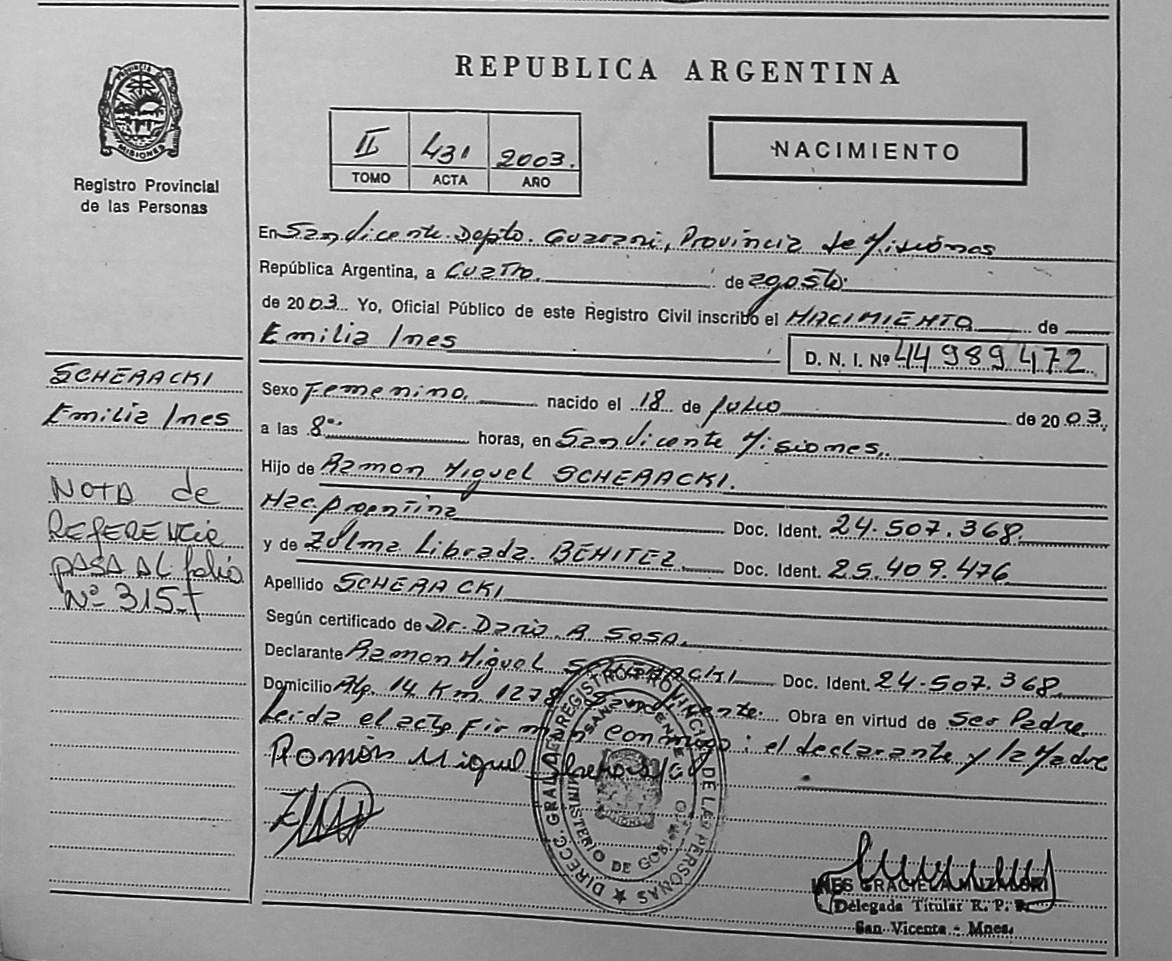 REPUBLICA ARGENTINA
PROVINCIA DE MISIONES
Registro Provincial
de las Personas
II 431 2003.
TOMO ACTA AÑO
NACIMIENTO
En San Vicente. Depto. Guarani, Provincia de Misiones
República Argentina, a Cuatro. de agosto.
de 2003. Yo, Oficial Público de este Registro Civil inscribo el NACIMIENTO de
Emilia Ines
D. N. I. Nº 44 989 472
SCHERACKI
Emilia Ines
NOTA de
REFERENCIA
PASA AL folio
Nº 315
Sexo Femenino. nacido el 18 de Julio de 2003.
a las 8 horas, en San Vicente Misiones.
Hijo de Ramon Miguel SCHERACKI.
Nac. Argentina Doc. Ident. 24.507.368.
y de Zulma Librada BENITEZ. Doc. Ident. 25.409.476
Apellido SCHERACKI
Según certificado de Dr. Dario A SOSA.
Declarante Ramon Miguel SCHERACKI Doc. Ident. 24.507.368.
Domicilio Km. 1278 San Vicente. Obra en virtud de Ser Padre.
Leida el acta firman conmigo: el declarante y la Madre
Ramón Miguel
DIRECC. GRAL. DE REGISTRO PROVINCIAL DE LAS PERSONAS
SAN VICENTE
MINISTERIO DE GOBIERNO
MISIONES
INES GRACIELA
Delegada Titular R. P.
San Vicente - Mnes.